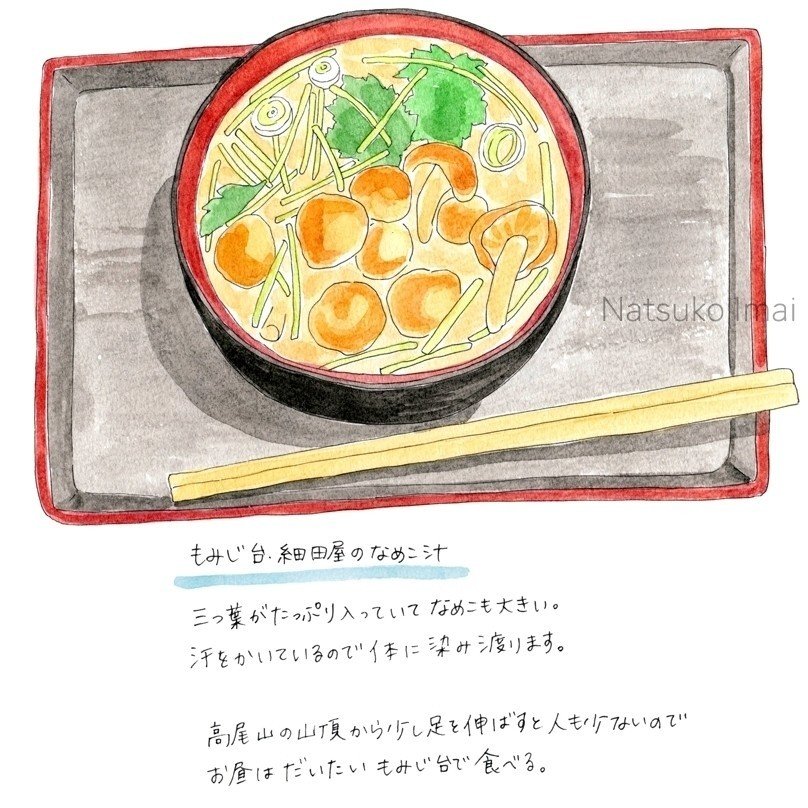 Natsuko Imai
もみじ台・細田屋のなめこ汁
三つ葉がたっぷり入っていてなめこも大きい。
汗をかいているので体に染み渡ります。
高尾山の山頂から少し足を伸ばすと人も少ないので
お昼はだいたいもみじ台で食べる。